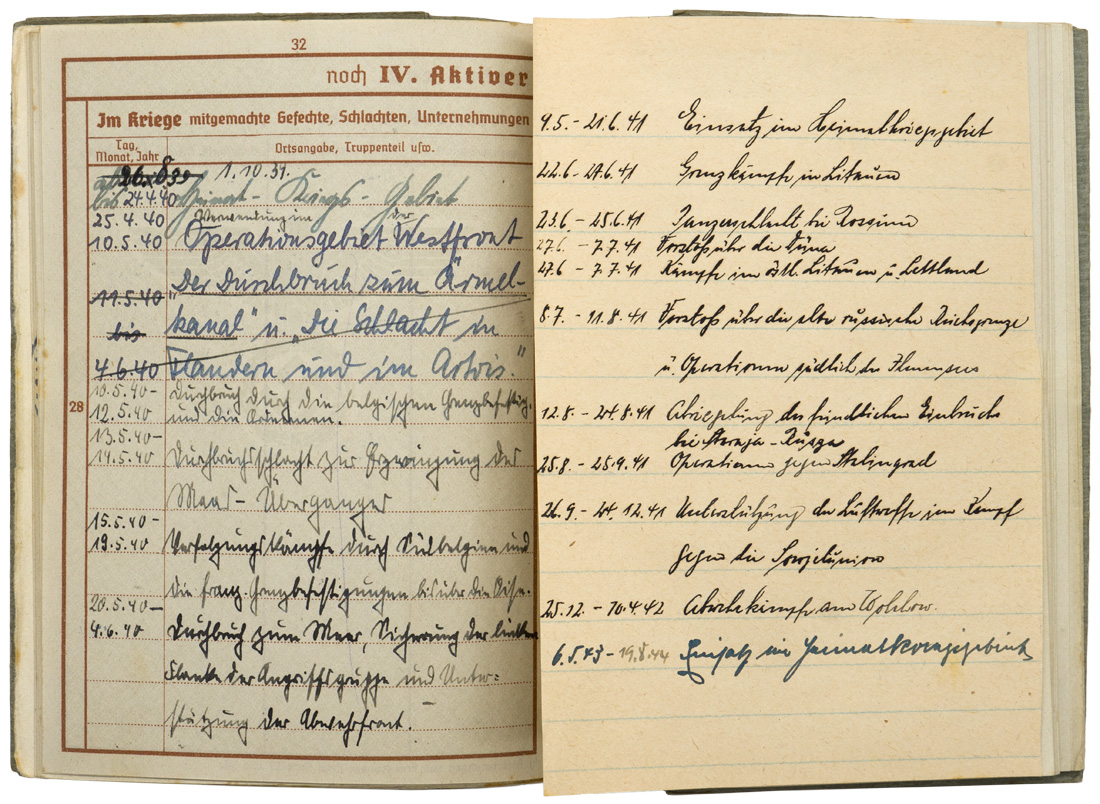 32
noch IV. Aktiver
Im Kriege mitgemachte Gefechte, Schlachten, Unternehmungen
Tag, Monat, Jahr
Ortsangabe, Truppenteil usw.
26.8.39 1.10.39.
bis 24.4.40 Heimat-Kriegs-Gebiet
25.4.40 Verwendung im der
10.5.40 Operationsgebiet Westfront
11.5.40 "Der Durchbruch zum Ärmel-
bis kanal" u. "Die Schlacht in
4.6.40 Flandern und im Artois."
10.5.40- Durchbruch durch die belgischen Grenzbefestig.
12.5.40 und die Ardennen.
28
13.5.40-
14.5.40 Durchbruchsschlacht zur Erzwingung des
Maas-Überganges
15.5.40-
19.5.40 Verfolgungskämpfe durch Südbelgien und
die franz. Grenzbefestigungen bis über die Oise.
20.5.40-
4.6.40 Durchbruch zum Meer, Sicherung der linken
Flanke der Angriffsgruppe und Unter=
stützung der Abwehrfront.
9.5. - 21.6.41 Einsatz im Heimatkriegsgebiet
22.6 - 24.6.41 Grenzkämpfe in Litauen
23.6 - 25.6.41 Panzerschlacht bei Rossinie
27.6 - 7.7.41 Vorstoß über die Düna
27.6 - 7.7.41 Kämpfe im östl. Litauen u. Lettland
8.7. - 11.8.41 Vorstoß über die alte russische Reichsgrenze
u. Operationen südlich des Ilmensees
12.8. - 24.8.41 Abriegelung des feindlichen Einbruchs
bei Staraja-Russa
25.8. - 25.9.41 Operationen gegen Stalingrad
26.9. - 24.12.41 Unterstützung der Luftwaffe im Kampf
gegen die Sowjetunion
25.12. - 10.4.42 Abwehrkämpfe am Wolchow.
6.5.43 - 19.8.44 Einsatz im Heimatkriegsgebiet